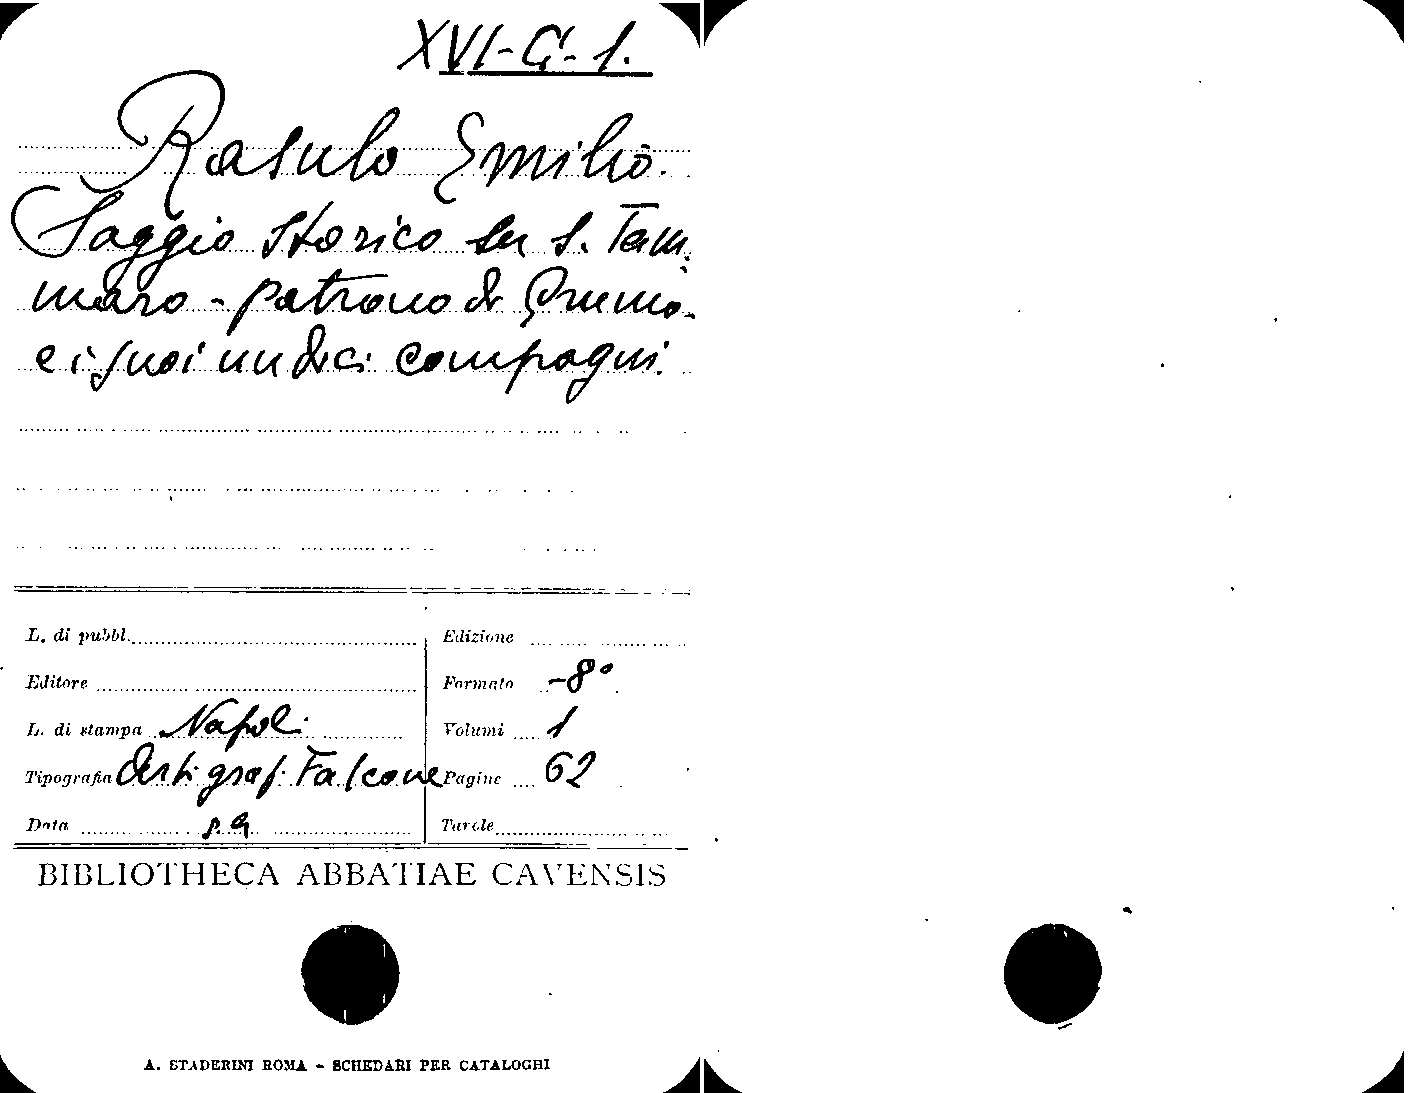 XVI-G-1.
Rasulo Emilio.
Saggio storico su S. Tam-
maro - patrono di Grumo-
e i suoi undici compagni.
L. di pubbl. Edizione
Editore Formato -8°
L. di stampa Napoli Volumi 1
Tipografia Arti graf. Falcone Pagine 62
Data s.a. Tavole
BIBLIOTHECA ABBATIAE CAVENSIS
A. STADERINI ROMA - SCHEDARI PER CATALOGHI